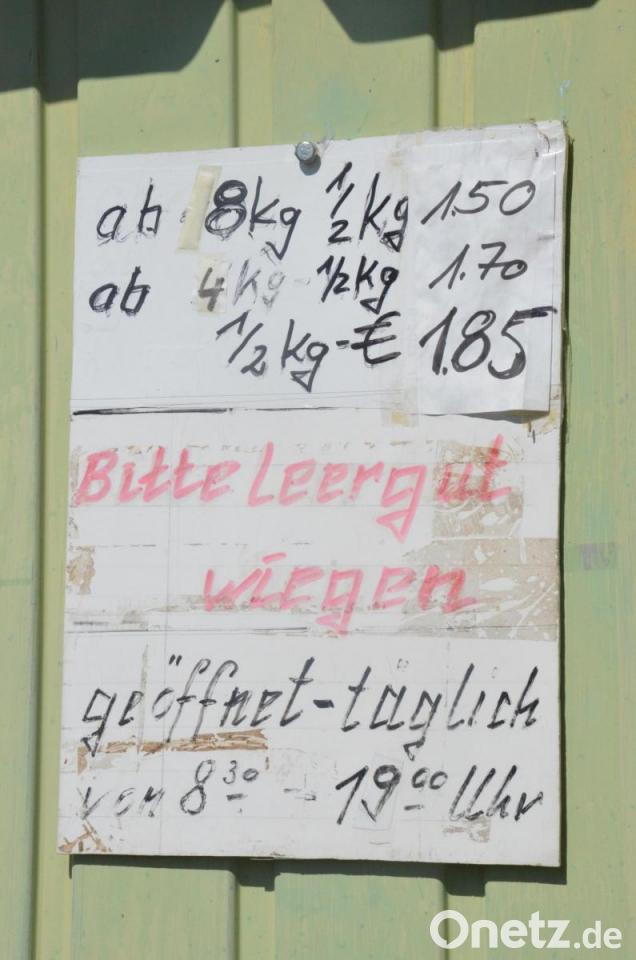 ab 8kg 1/2kg 1.50
ab 4kg - 1/2kg 1.70
1/2kg - € 1.85
Bitte Leergut
wiegen
geöffnet - täglich
von 8³⁰ - 19⁰⁰ Uhr
Onetz.de